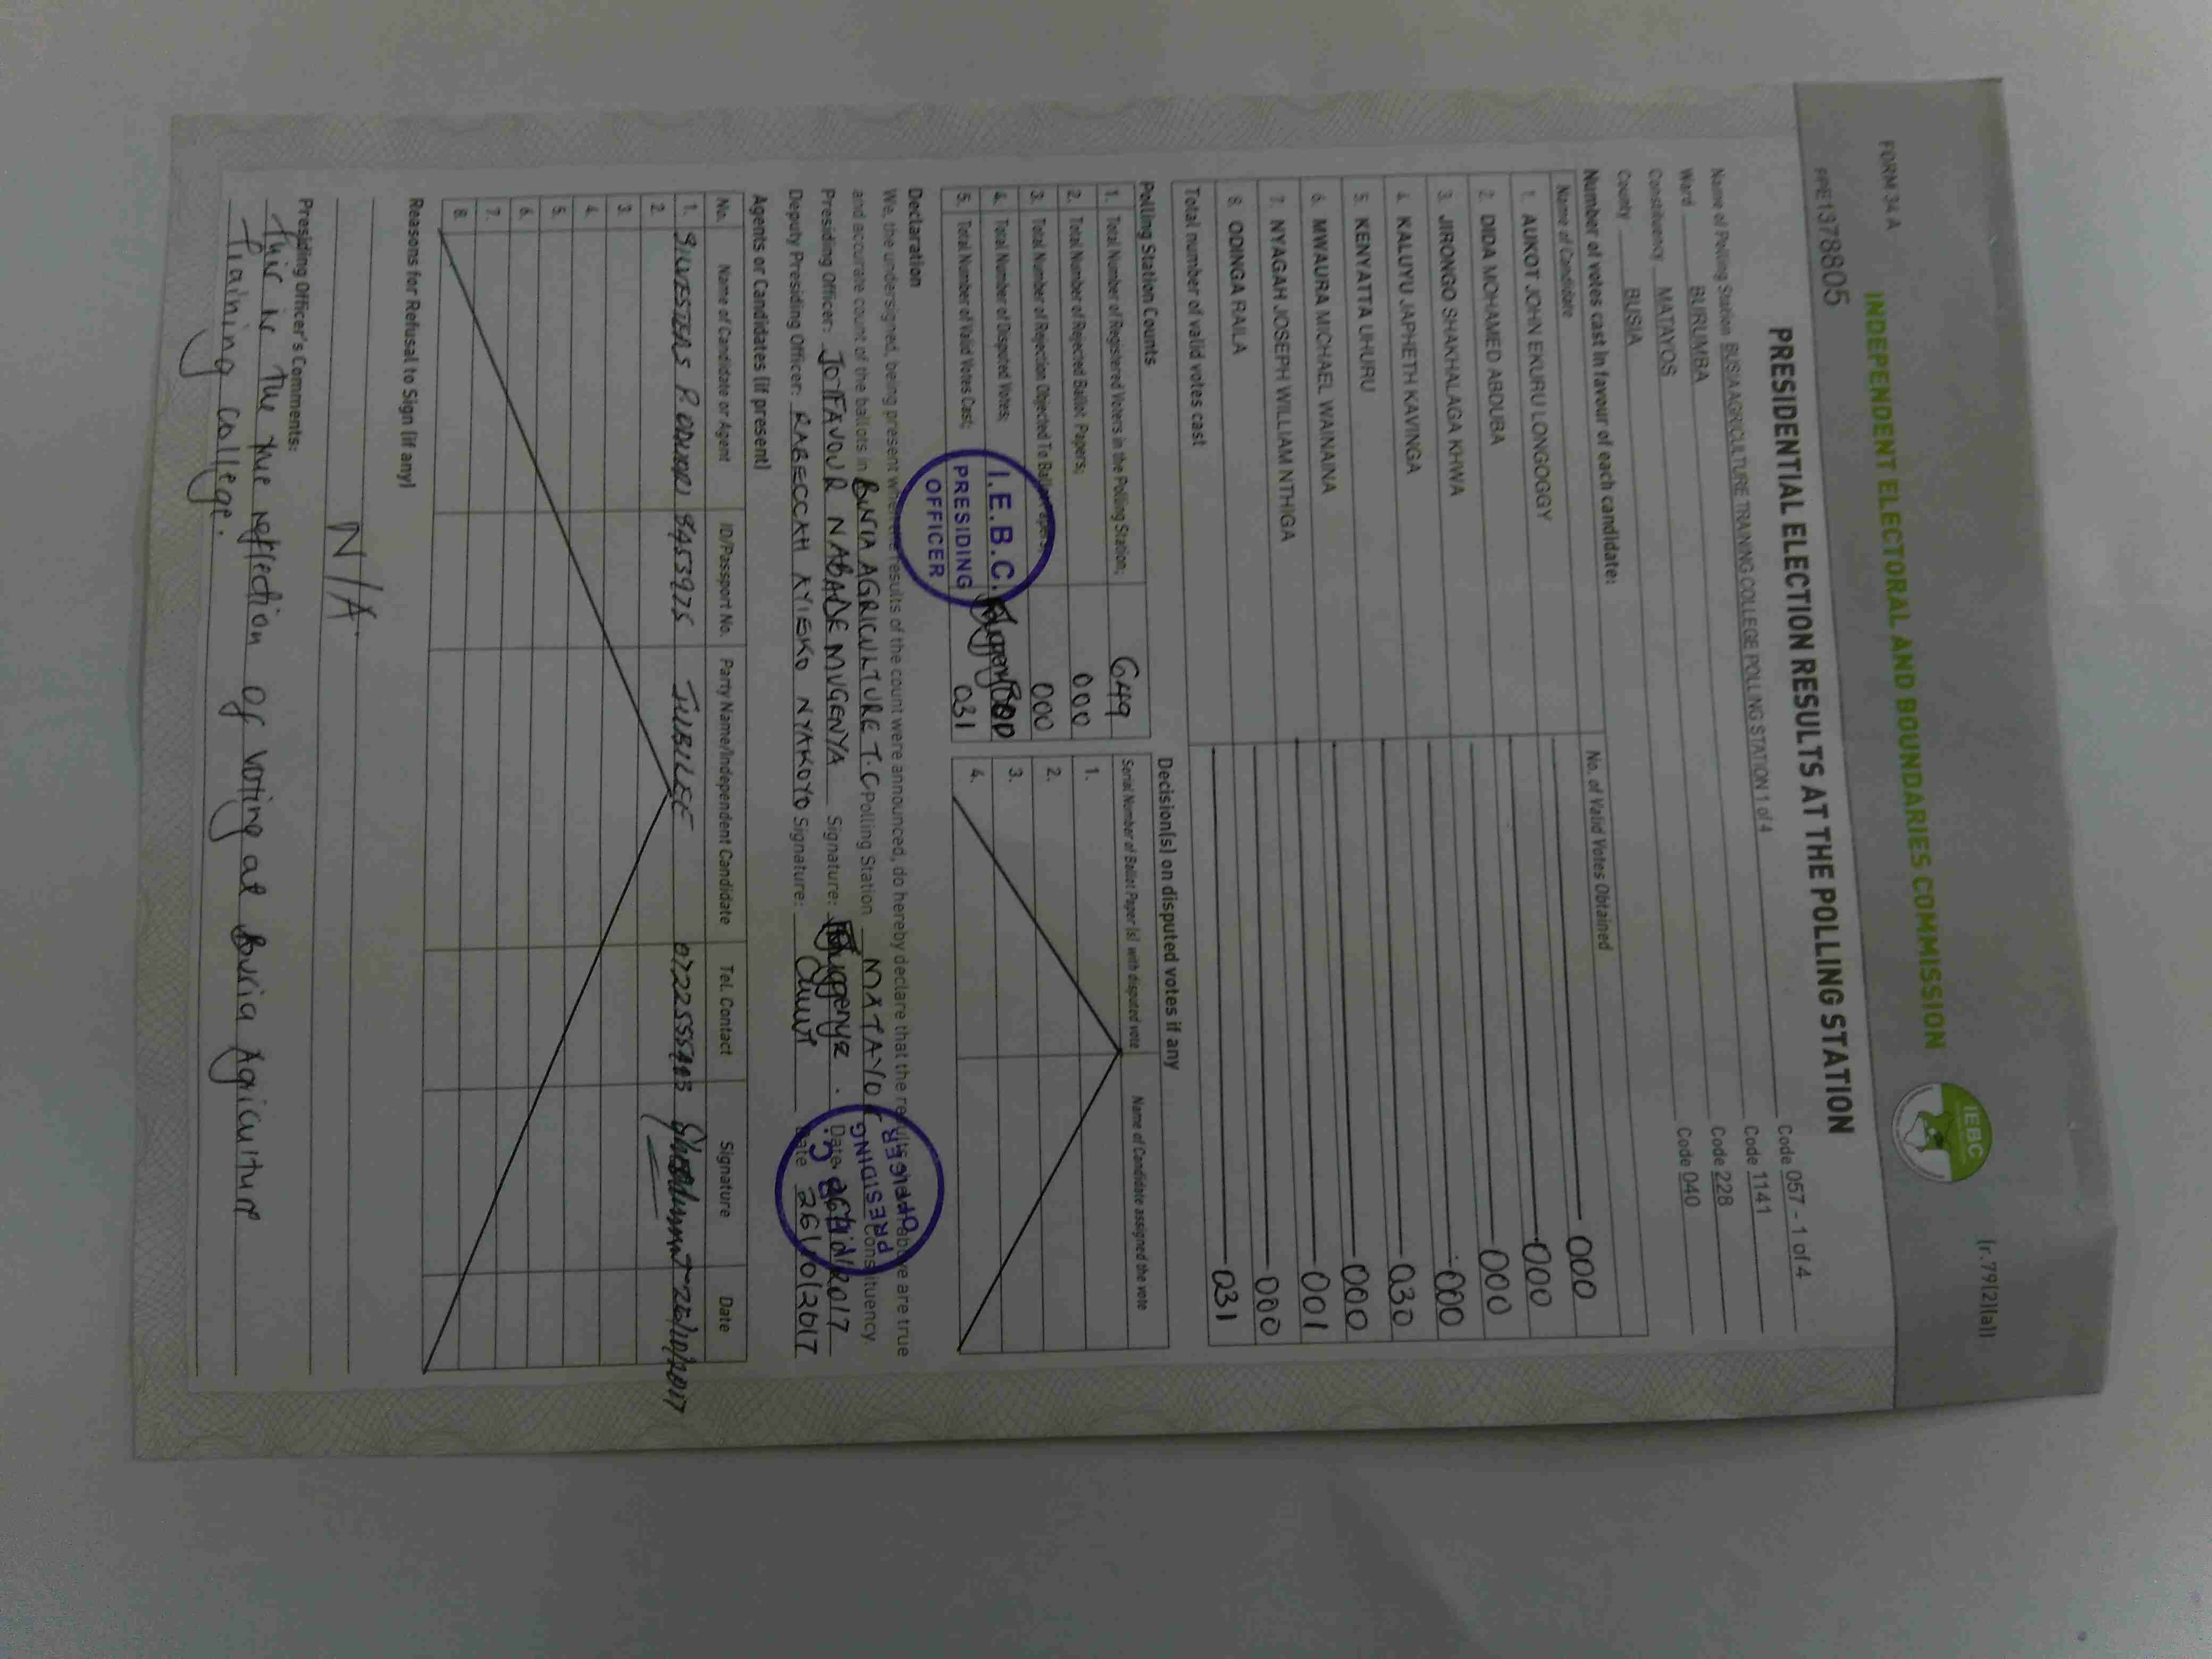 FORM 34 A
(r.79(2)(a))
INDEPENDENT ELECTORAL AND BOUNDARIES COMMISSION
IEBC
PPE1378805
PRESIDENTIAL ELECTION RESULTS AT THE POLLING STATION
Name of Polling Station BUSIA AGRICULTURE TRAINING COLLEGE POLLING STATION 1 of 4 Code 057 - 1 of 4
Ward BURUMBA Code 1141
Constituency MATAYOS Code 228
County BUSIA Code 040
Number of votes cast in favour of each candidate:
Name of Candidate No. of Valid Votes Obtained
1. AUKOT JOHN EKURU LONGOGGY 000
2. DIDA MOHAMED ABDUBA 000
3. JIRONGO SHAKHALAGA KHWA 000
4. KALUYU JAPHETH KAVINGA 000
5. KENYATTA UHURU 030
6. MWAURA MICHAEL WAINAINA 000
7. NYAGAH JOSEPH WILLIAM NTHIGA 001
8. ODINGA RAILA 000
Total number of valid votes cast 031
Polling Station Counts
1. Total Number of Registered Voters in the Polling Station; 649
2. Total Number of Rejected Ballot Papers; 000
3. Total Number of Rejection Objected To Ballot Papers; 000
4. Total Number of Disputed Votes; 000
5. Total Number of Valid Votes Cast; 031
Decision(s) on disputed votes if any
Serial Number of Ballot Paper (s) with disputed vote Name of Candidate assigned the vote
1.
2.
3.
4.
I.E.B.C.
PRESIDING
OFFICER
Declaration
We, the undersigned, being present when the results of the count were announced, do hereby declare that the results above are true
and accurate count of the ballots in BUSIA AGRICULTURE T.C Polling Station MATAYOS Constituency.
Presiding Officer: JOTFAVOUR NABALE MUGENYA Signature: Muggenya. Date. 26/10/2017
Deputy Presiding Officer: RABECCAH KYIEKO NYAKOYO Signature: Date 26/10/2017
PRESIDING
OFFICER
Agents or Candidates (if present)
No. Name of Candidate or Agent ID/Passport No. Party Name/Independent Candidate Tel. Contact Signature Date
1. SILVESTERS P. ODUORI 8453975 JUBILEE 26/10/2017
2.
3.
4.
5.
6.
7.
8.
Reasons for Refusal to Sign (if any)
N/A.
Presiding Officer's Comments:
This is the true reflection of voting at Busia Agriculture
Training college.